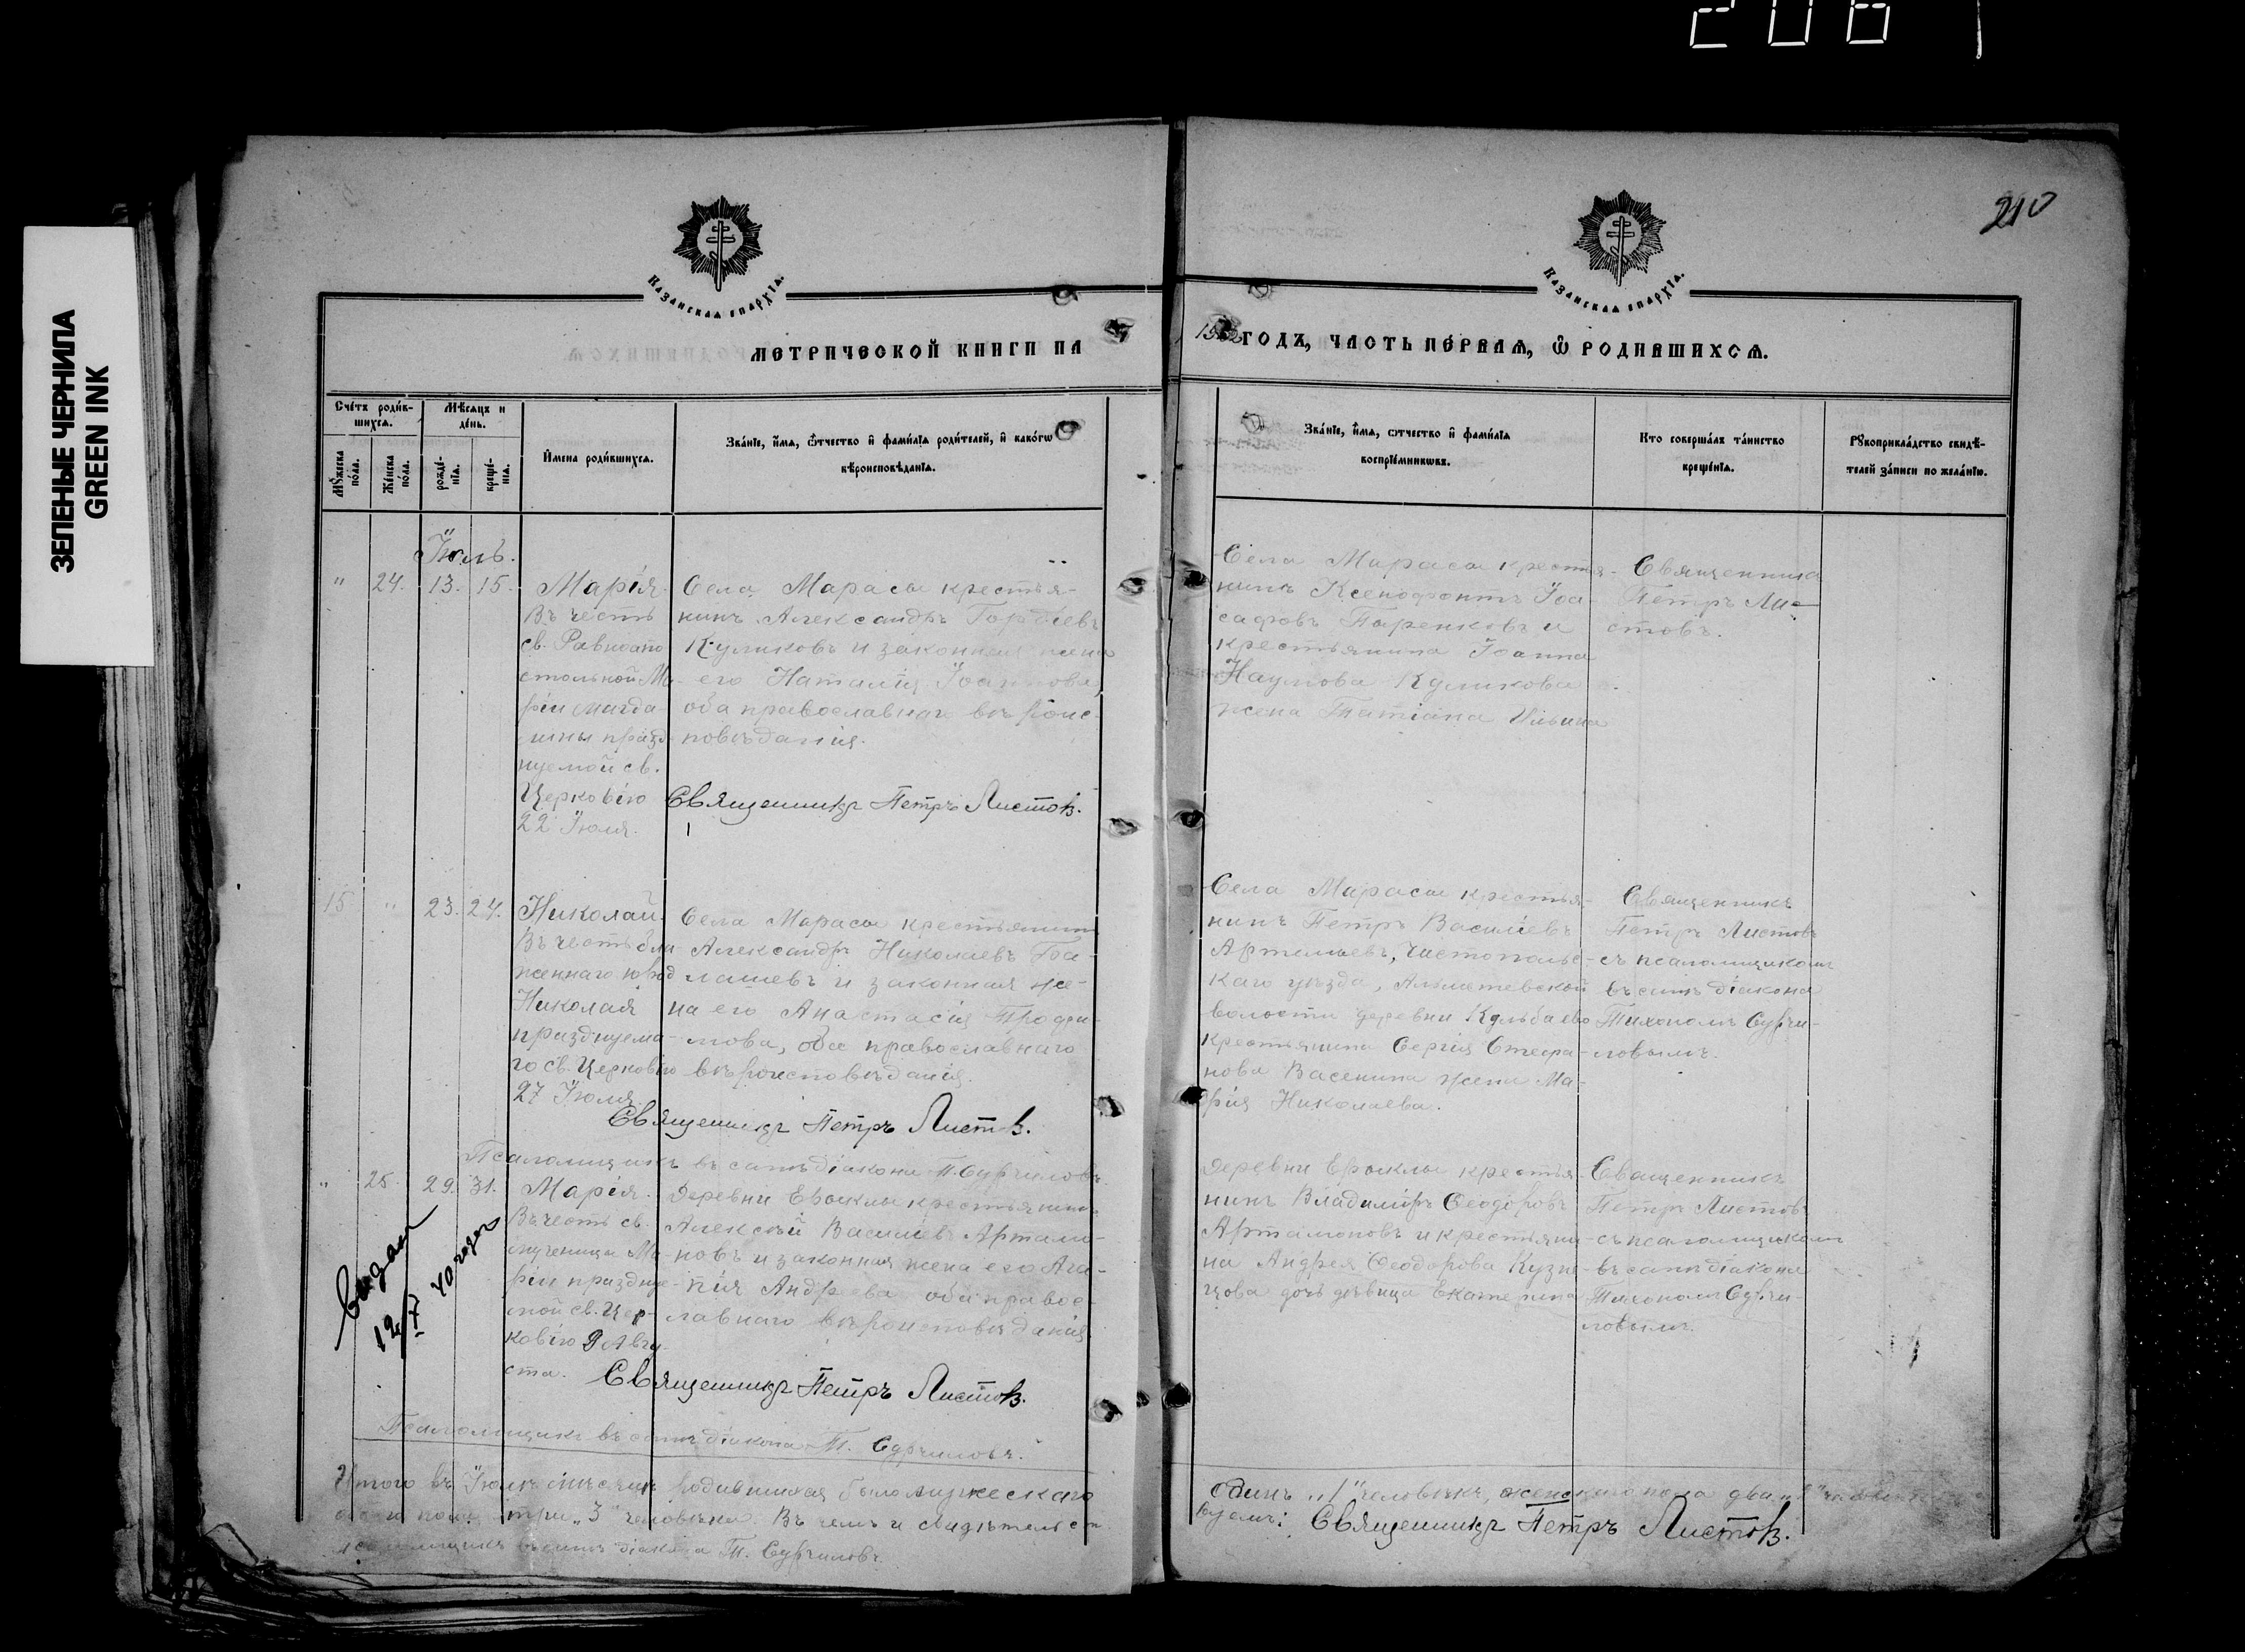 2081
ЗЕЛЕНЫЕ ЧЕРНИЛА
GREEN INK
210
Казанская епархїѧ.
Казанская епархїѧ.
МЕТРИЧЕСКОЙ КНИГИ НА
ГОДЪ, ЧАСТЬ ПЕ́РВАѦ, Ѽ РОДИВШИХСѦ.
Сче́тъ роди́в-
шихсѧ.
Мѣ́сѧцъ и
де́нь.
Мꙋ́жеска
по́ла.
Же́нска
по́ла.
рожде́-
нїѧ.
креще́-
нїѧ.
И҆мена роди́вшихсѧ.
Зва́нїе, и҆́мѧ, ѻ҆́тчество и҆ фами́лїѧ роди́телей, и҆ како́гѡ
вѣроисповѣ́данїѧ.
Зва́нїе, и҆́мѧ, ѻ҆тчество и҆ фами́лїѧ
воспрїе́мникѡвъ.
Кто соверша́лъ та́инство
креще́нїѧ.
Рꙋкоприкла́дство свидѣ́-
телей за́писи по жела́нїю.
Іюль.
" 24. 13. 15.
Марія.
Въ честь
св. Равноапо
стольной Ма-
ріи Магда-
лины празд-
нуемой св.
Церковію
22 Іюля.
Села Марасы крестья-
нинъ Александръ Гордѣевъ
Куликовъ и законная жена
его Наталія Іоаннова,
оба православнаго вѣроис-
повѣданія.
Священникъ Петръ Листовъ.
Села Марасы крестья-
нинъ Ксенофонтъ Іоа-
сафовъ Паренковъ и
крестьянина Іоанна
Наумова Куликова
жена Татіана Ильина
Священникъ
Петръ Ли-
стовъ.
15 " 23. 24.
Николай.
Въ честь бла
женнаго юрод
Николая
празднуема-
го св. Церковію
27 Іюля.
Села Марасы крестьянинъ
Александръ Николаевъ Ба-
лашевъ и законная же-
на его Анастасія Трофи-
мова, оба православнаго
вѣроисповѣданія.
Священникъ Петръ Листовъ.
Псаломщикъ въ санѣ діакона Т. Сурчиловъ.
Села Марасы крестья-
нинъ Петръ Василіевъ
Артемьевъ, Чистопольс-
каго уѣзда, Альметевской
волости деревни Кульбаево
крестьянина Сергія Стефа-
нова Васенина жена Ма-
рія Николаева.
Священникъ
Петръ Листовъ
съ псаломщикомъ
въ санѣ діакона
Тихономъ Сурчи-
ловымъ.
" 25. 29. 31.
Марія.
Въ честь св.
мученицы Ма-
ріи празднуе-
мой св. Цер-
ковію 9 Авгу-
ста.
Деревни Ерыклы крестьянинъ
Алексѣй Василіевъ Артамо-
новъ и законная жена его Ага-
пія Андреева оба правос-
лавнаго вѣроисповѣданія
Священникъ Петръ Листовъ.
Псаломщикъ въ санѣ діакона Т. Сурчиловъ.
Выдан
Деревни Ерыклы крестья-
нинъ Владиміръ Ѳеодоровъ
Артамоновъ и крестьяни-
на Андрея Ѳеодорова Кузне-
цова дочь дѣвица Екатерина
Священникъ
Петръ Листовъ
съ псаломщикомъ
въ санѣ діакона
Тихономъ Сурчи-
ловымъ.
Итого въ Іюлѣ мѣсяцѣ родившихся было мужескаго
одинъ „1" человѣкъ, женскаго пола два „2" человѣка
пола три „3" человѣка. Въ чемъ и свидѣтельст
вуемъ: Священникъ Петръ Листовъ.
псаломщикъ въ санѣ діакона Т. Сурчиловъ.